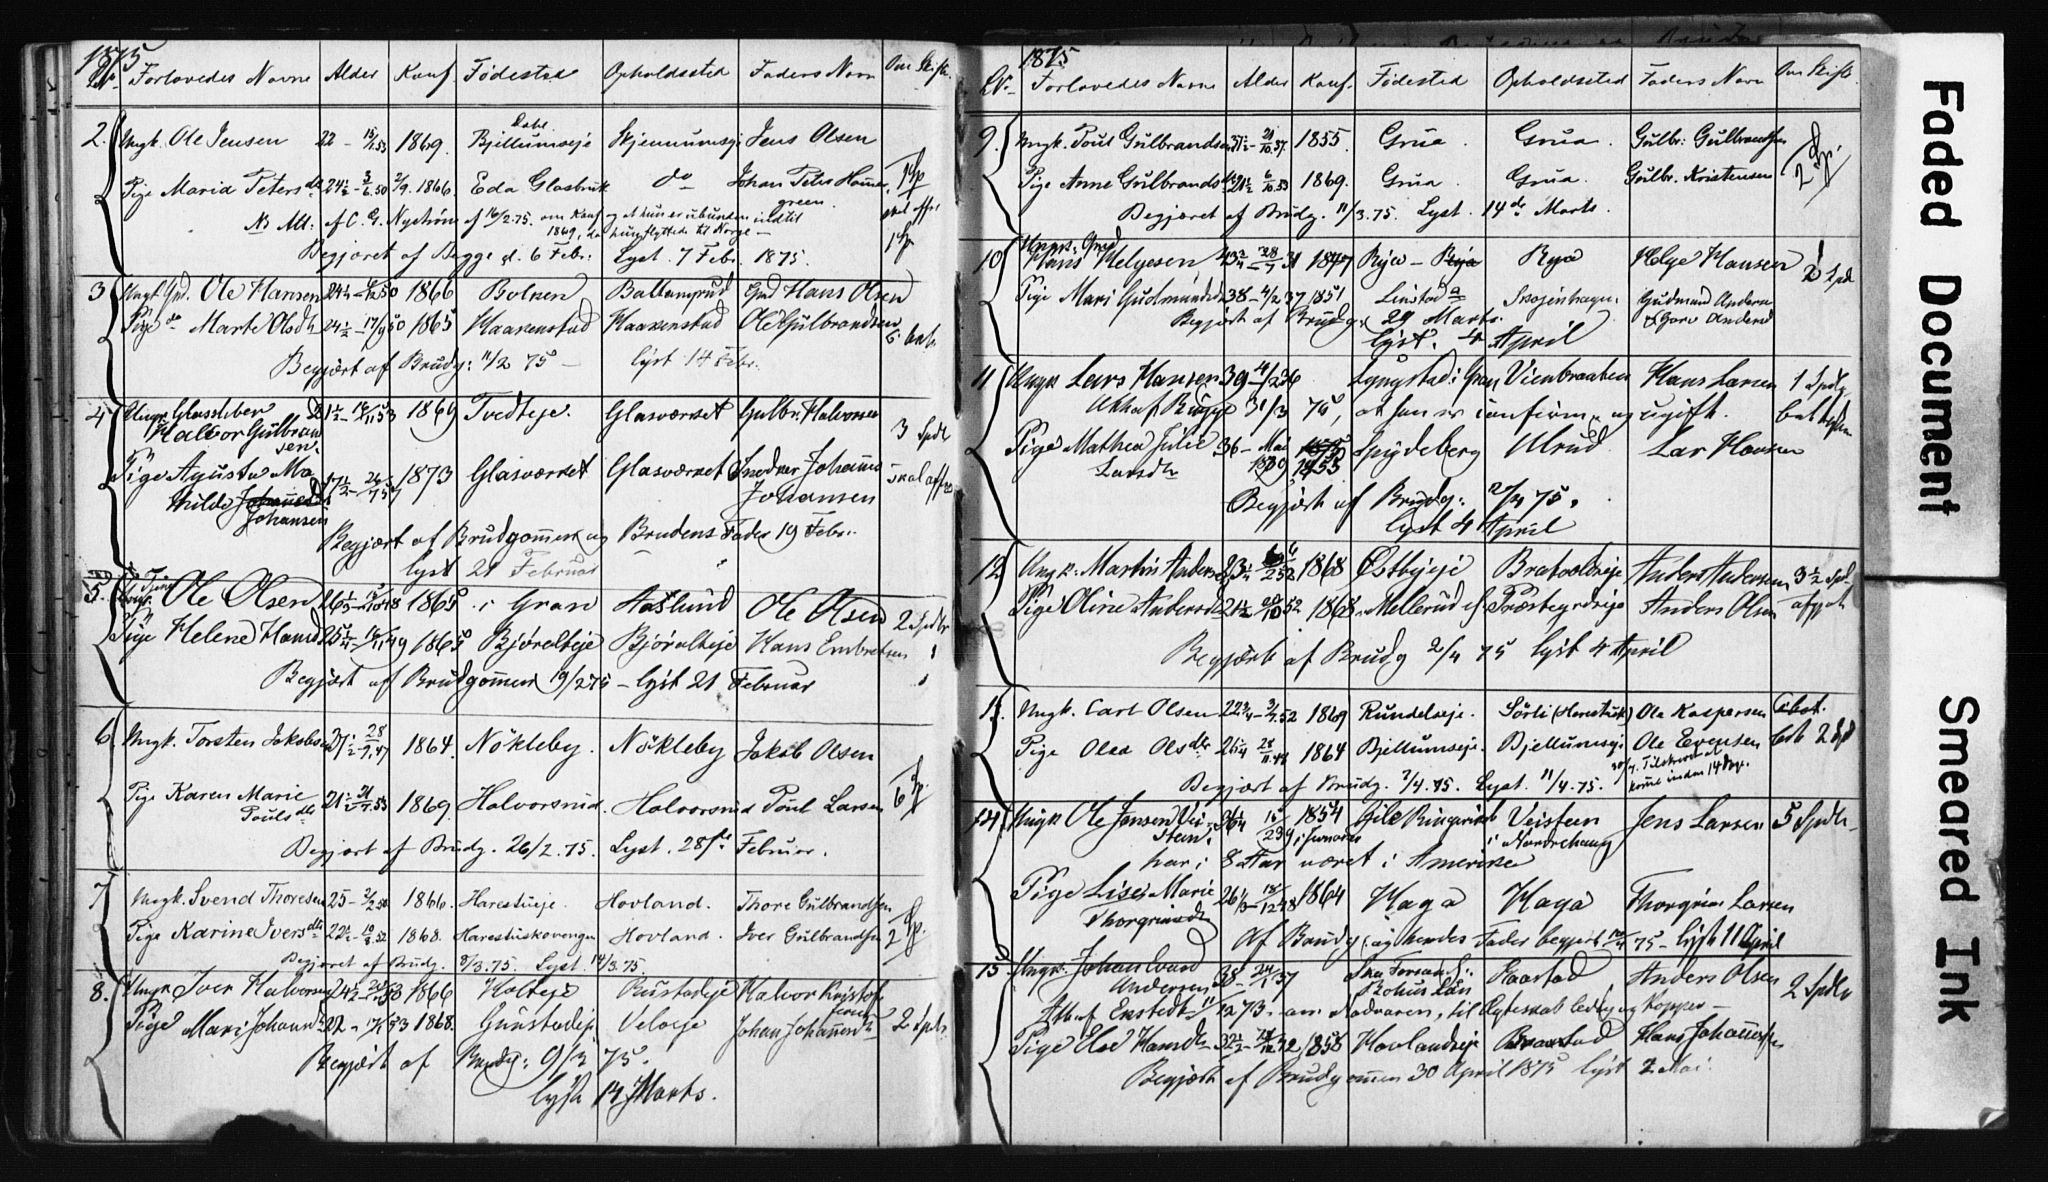 1875
No Forlovedes Navne Alder Konf. Fødested Opholdssted Faders Navn Om Skifte
2. Ungk. Ole Jensen 22 - 15/1.53 1869. Bjellumseje Skjerumseje Jens Olsen
Pige Maria Petersdr 24½ - 3/6.50 2/9.1866. Eda Glasbruk do Johan Peter Hammergreen. 1 Sp
NB Att: af C. G. Nystrøm af 16/2.75. om Konf og at hun er ubunden indtil
1869, da hun flyttede til Norge -
Begjæret af Begge d. 6 Febr: Lyst. 7 Febr. 1875.
3 Ungk Gmd. Ole Hansen 24¼ - 50 1866 Bolken Ballangrud Gmd Hans Olsen
Pige do Marte Olsdtr 24½ - 17/9 50 1865 Haakenstad Haakenstad Ole Gulbrandsen
Begjært af Brudg: 11/2 75 - lyst 14 Febr.
4 Ungk Glassliber Halvor Gulbrandsen. 1½ - 16/11 53 1869 Tvedteje. Glasværket Gulbr. Halvorsen 3 Spdl
Pige Agusta Mathilde Johansen 17½ - 26/7 57 1873 Glasværket Glasværket Snedker Johannes Johansen skal
Begjært af Brudgommen og Brudens Fader 19 Febr.
lyst 21 Februar
5. Ole Olsen 26½ - 15/10 48 1865 i Gran Aaslund Ole Olsen 2 Spdlr
Pige Helene Hansd 25¼ - 16/11 49 1865 Bjørelteje Bjøralteje Hans Embretsen
Begjært af Brudgommen 19/2 75 - lyst 21 Februar
6 Ungk. Torsten Jakobsen 27½ - 28/9.47 1864. Nökleby. Nökleby Jakob Olsen
Pige Karen Marie Poulsdtr 21½ - 21/7.53 1869. Halvorsrud. Halvorsrud Poul Larsen 6 Sp
Begjært af Brudg. 26/2.75. Lyst. 28de Februar.
7 Ungk. Svend Thoresen 25 - 2/2 50 1866. Harestueje. Hovland. Thore Gulbrandsen
Pige Karine Iversdtr 22½ - 10/8.52 1868. Harestuskovengen Hovland. Iver Gulbrandsen 2 Sp.
Begjæret af Brudg. 8/3.75. Lyst. 14/3.75.
8. Ungk Iver Halvorsen 24½ - 50 1866 Holteje Rustadeje Halvor Kristofersen
Pige Mari Johannd 22 - 53 1868. Gunstadeje Veloeje Johan Johannesen 2 Spdlr
Begjært af Brudg: 9/3 75.
lyst 14 Marts.
1875
No Forlovedes Navne Alder Konf. Fødested Opholdssted Faders Navn Om Skifte
9. Ungk. Poul Gulbrandsen 37½ - 21/10.37. 1855. Grua. Grua. Gulbr: Gulbrandsen 2 Sp.
Pige Anne Gulbrandsdtr 21½ - 6/10.53 1869. Grua. Grua. Gulbr. Kristensen
Begjæret af Brudg. 11/3.75. Lyst. 14de Marts.
10 Hans Helgesen 43¾ - 28/7 31 1847 Rya Rya Helge Hansen 2 Spd
Pige Mari Gudmundsdtr 38 - 4/2 37 1851 Linstad Skojenhagen Gudmund Anders
Begjært af Brudg: 29 Marts.
lyst. 4 April
11 Ungk Lars Hansen 39 - 4/2 36 Lyngstad i Gran Vienbraaten Hans Larsen 1 Spdlr
Att af Brugge 31/3 75, at han er confirm. og ugift. betalt
Pige Mathea Julie Larsdtr 36 - Mai 1839 1853 Spydeberg Ulrud Lar Hansen
Begjært af Brudg: 2/4 75.
lyst 4 April
12. Ungk: Martin Anders 23¼ - 52 1868 Østbyeje Bratvoldseje Anders Andersen 3½ Spd
Pige Oline Andersd 21½ - 20/10 52 1868 Mellerud Præstegrdseje Anders Olsen
Begjært af Brudg 2/4 75 lyst 4 April
13. Ungk. Carl Olsen 22¾ - 3/7.52 1869 Rundelseje. Sörli (Harestuk) Ole Kaspersen
Pige Olea Olsdtr 26¼ 28/11.48 1864 Bjellumseje. Bjellumseje Ole Evensen bet 2 Spd
Begjært af Brudg. 7/4.75. Lyst. 11/4.75.
14. Ungk Ole Jensen Veistein. 36¼ 15/2 39 1854 i Jevnaker Gile Ringerike Veistein i Nordrehaug Jens Larsen 5 Spdlr
har i 8 Aar været i Amerika
Pige Lise Marie Thorgrimsdtr 26⅓ - 18/12 48 1864 Haga Haga Thorgrim Larsen
Af Brudg: og hendes Fader begjært 10/4 75 - lyst 11 April
15 Ungk. Johan Evard Andersen 38 - 24/1 37 Bohus Län Haastad Anders Olsen 2 Spdlr
Att. af Enstedt 11/12 73. om Nadveren, til Ægteskab ledig og Kopper -
Pige Else Hansdtr 32½ - 42 1858 Hovlandseje Haastad Hans Johannesen
Begjært af Brudgommen 30 April 1875 lyst 2 Mai.
Faded Document
Smeared Ink